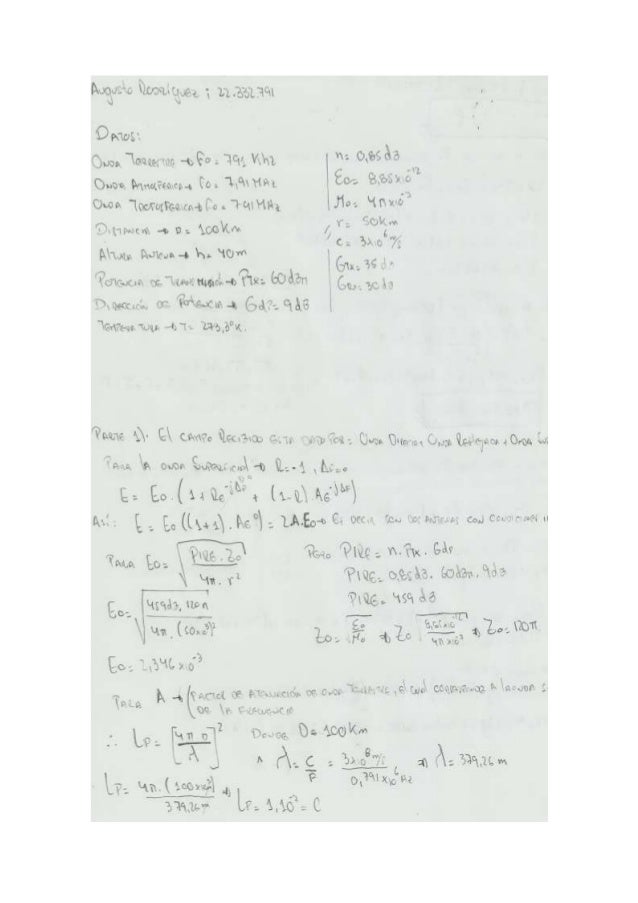 Augusto Rodríguez ; 22.332.791
DATOS:
ONDA TERRESTRE → fo = 791 Khz
ONDA ATMOSFERICA → fo = 7,91 MHz
ONDA TROPOSFERICA → fo = 791 MHz
DISTANCIA → D = 100 Km
ALTURA ANTENA → h = 40m
POTENCIA DE TRANSMISIÓN → PTx = 60 dBm
DIRECCIÓN DE POTENCIA → GdP = 9 dB
TEMPERATURA → T = 273,3°K.
n = 0,85 dB
Eo = 8,85x10^-12
Mo = 4πx10^-3
r = 50Km
c = 3x10^6 m/s
GTx = 35 dB
GRx = 30 dB
PARTE 1). El CAMPO RECIBIDO ESTA DADO POR = ONDA DIRECTA + ONDA REFLEJADA + ONDA
PARA la ONDA SUPERFICIAL → R = -1 , Δ = 0
E = Eo . (1 + Re^-jΔ0 + (1-R) . Ae^-jΔE)
Así : E = Eo ((1+1) . Ae^0) = 2A.Eo → Es DECIR SON DOS ANTENAS CON CONDICIONES
PARA Eo = √(PIRE . Zo / 4π . r^2)
PERO PIRE = n . PTx . Gdp
PIRE = 0,85dB . 60dBm . 9dB
PIRE = 459 dB
Eo = √(459dB, 120π / 4π . (50x10^3)^2)
Zo = √(Eo / Mo) → Zo √(8,85x10^-12 / 4πx10^-3) → Zo = 120π.
Eo = 2,346x10^-3
PARA A → (FACTOR DE ATENUACIÓN DE ONDA TERRESTRE, el cual CORRESPONDE A la ONDA
DE la FRECUENCIA
∴ LP = [4πD / λ]^2 DONDE D = 100Km
^ λ = C / F = 3x10^8 m/s / 0,791x10^6 Hz → λ = 379,26 m
LP = 4π . (100x10^3) / 379,26m → LP = 1,10^-7 = C